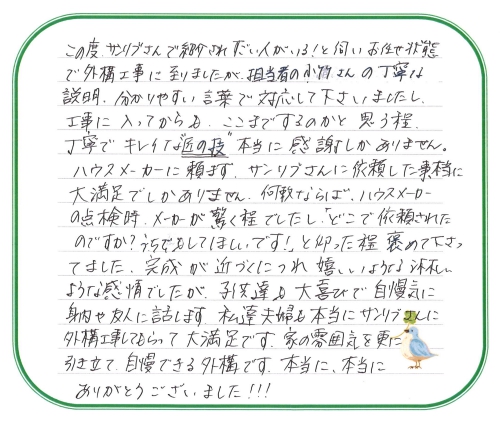 この度、サンリブさんで紹介されたい人がいる！と伺いお任せ状態
で外構工事に至りましたが、担当者の小竹さんの丁寧な
説明、分かりやすい言葉で対応して下さいましたし、
工事に入ってからも、ここまでするのかと思う程、
丁寧でキレイな"匠の技"本当に感謝しかありません。
ハウスメーカーに頼まず、サンリブさんに依頼した事に
大満足でしかありません。何故ならば、ハウスメーカー
の点検時、メーカーが驚く程でしたし、「どこで依頼された
のですか？うちでもしてほしいです！」と仰った程 褒めて下さっ
てました。完成が近づくにつれ嬉しいような淋しい
ような感情でしたが、子供達も大喜びで自慢気に
身内や友人に話します。私達夫婦も本当にサンリブさんに
外構工事してもらって大満足です。家の雰囲気を更に
引き立て、自慢できる外構です。本当に、本当に
ありがとうございました！！！